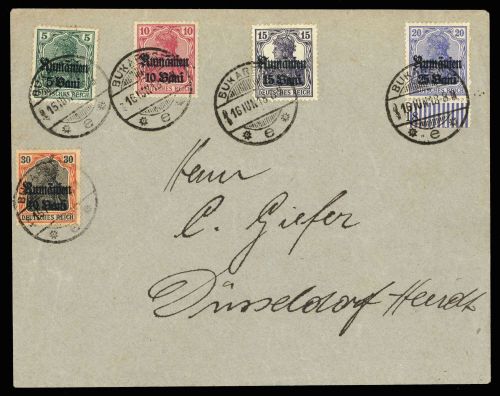 5 5
Rumänien
5 Bani
DEUTSCHES REICH
10 10
Rumänien
10 Bani
DEUTSCHES REICH
15 15
Rumänien
15 Bani
DEUTSCHES REICH
20 20
Rumänien
25 Bani
DEUTSCHES REICH
BUKAR
e
BUKARE
16
e
BUKARE
16
e
30 30
Rumänien
40 Bani
DEUTSCHES REICH
e
Herrn
C. Giefer
Düsseldorf-Heerdt